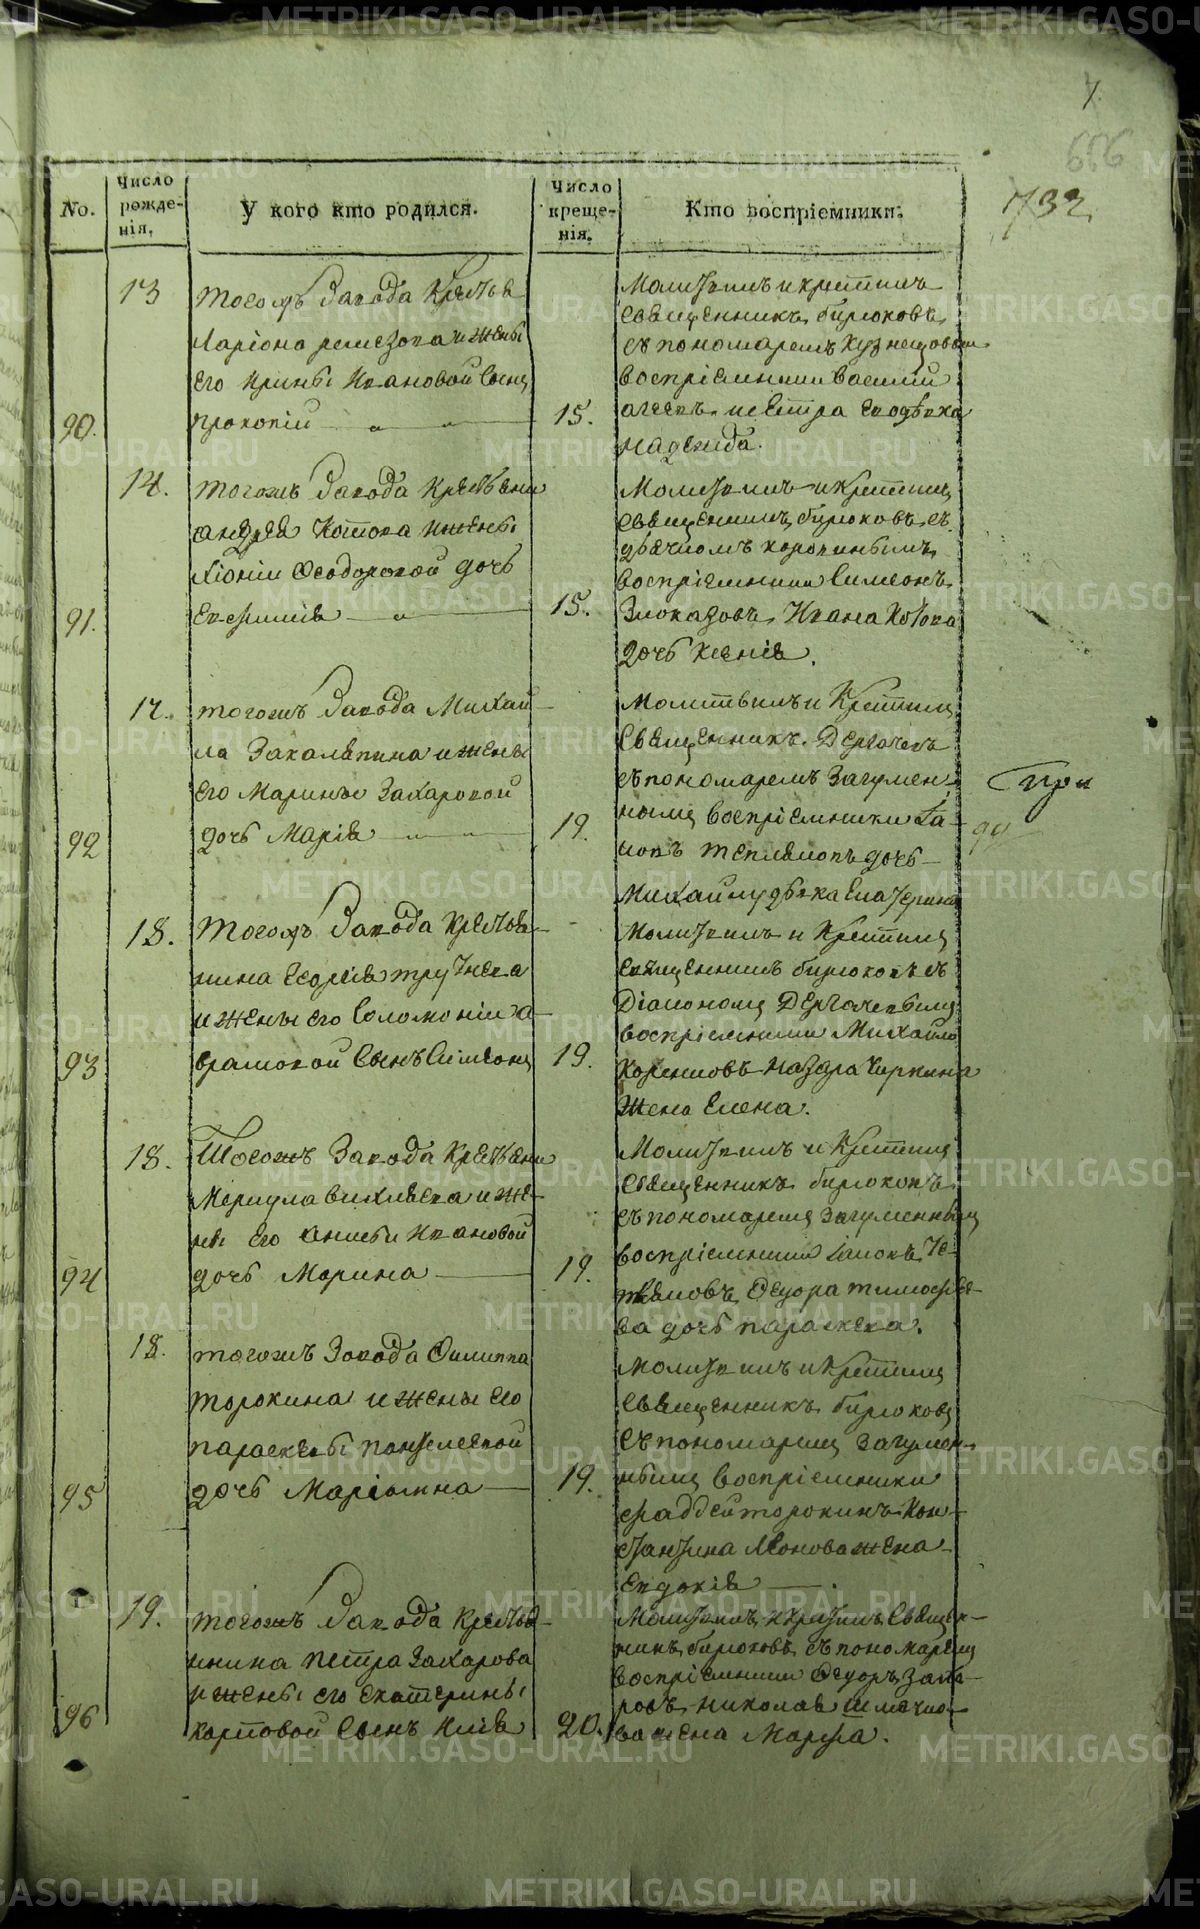 7.
656
732
No.
Число рожде-нія.
У кого кто родился.
Число креще-нія.
Кто воспріемники.
90.
13
тогожъ Завода Крестья
Ларіона ремезова и жены
его Ирины Ивановой Сынъ
прокопій
15.
Молитвилъ и крестилъ
священникъ бирюковъ
съ пономаремъ Кузнецовым
воспріемники василий
петра
надежда.
91.
14.
тогожъ Завода Крестьени
андрея Котова и жены
Хіоніи Ѳеодоровой дочь
Евфимія
15.
Молитвилъ и Крестилъ
священникъ бирюковъ съ
дьячкомъ
воспріемники Симеонъ
Злоказовъ, Ивана Котова
дочь Ксенія.
92
17.
тогожъ Завода Михай
ла Закаляпина и жены
его Марины Захаровой
дочь Марія
19.
Молитвилъ и Крестилъ
священникъ Дергачевъ
съ пономаремъ Загумен
нымъ воспріемники
дочь
Екатерина
При
93
18.
тогожъ Завода Крестья-
нина Георгія трутнева
и жены его Соломоніи а-
врамовой Сынъ Симеонъ
19.
Молитвилъ и Крестилъ
священникъ бирюковъ съ
Діакономъ Дергачевымъ
воспріемники Михайло
Назара Чиркина
Жена Елена.
94
18.
Тогожъ Завода Крестьени
Меркула вихляева и же-
ны его анисьи Ивановой
дочь Марина
19.
Молитвилъ и Крестилъ
священникъ бирюковъ
съ пономаремъ Загуменнымъ
воспріемники
Ѳедора тимофее-
ва дочь параскева.
95
18.
тогожъ Завода Филиппа
торокина и жены его
параскевы пантелеевой
дочь Маріамна
19.
Молитвилъ и Крестилъ
священникъ бирюковъ
съ пономаремъ Загумен-
нымъ воспріемники
фаддей торокинъ Кон-
стантина Леонова жена
Евдокія
96
19.
тогожъ Завода Крестья-
нина петра Захарова
и жены его екатерины
карповой Сынъ Илія
20.
Молитвилъ и крестилъ Священ-
никъ бирюковъ съ пономаремъ
воспріемники Ѳедоръ Заха-
ровъ николая
ва жена Марфа.
METRIKI.GASO-URAL.RU